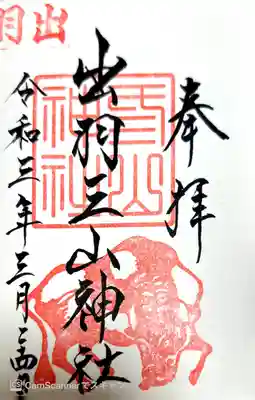 奉拝
出羽三山神社
令和三年三月二四日
出羽
CS CamScannerでスキャン